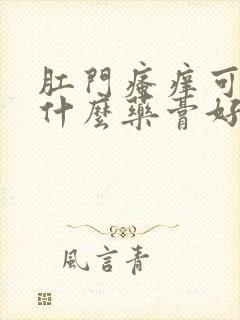 肛門瘙癢可
什麼藥膏好
風言青